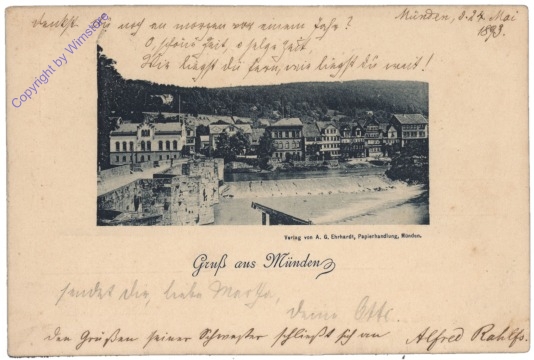 denkst Du noch an morgen vor einem Jahr?
Münden, d. 24. Mai
1893.
O, schöne Zeit, o selge Zeit,
Wie liegst du fern, wie liegst du weit!
Copyright by Wimstore
Verlag von A. G. Ehrhardt, Papierhandlung, Münden.
Gruß aus Münden
sendet dir, liebe Martha,
deine Otti.
den Grüßen seiner Schwester schließt sich an Alfred Rahlfs.